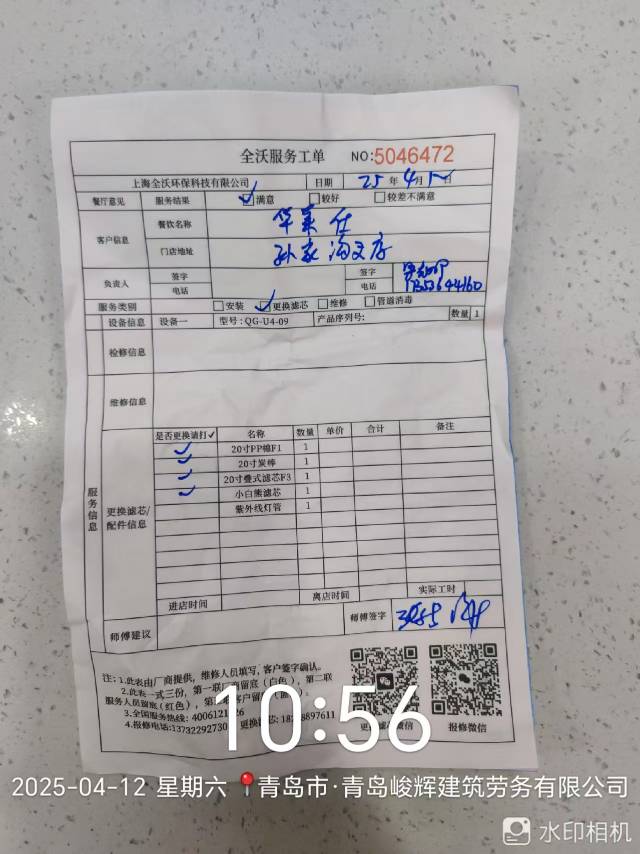 全沃服务工单 NO:5046472
上海全沃环保科技有限公司 日期 25 年 4 月 日
餐厅意见 服务结果 ✓满意 较好 较差不满意
客户信息 餐饮名称 华莱仕
门店地址 孙家沟支店
负责人 签字 签字
电话 电话
服务类别 安装 ✓更换滤芯 维修 管道消毒
设备信息 设备一 型号:QG-U4-09 产品序列号: 数量 1
检修信息
维修信息
服务信息
更换滤芯/配件信息
是否更换请打✓ 名称 数量 单价 合计 备注
✓ 20寸PP棉F1 1
✓ 20寸炭棒 1
✓ 20寸叠式滤芯F3 1
✓ 小白熊滤芯 1
紫外线灯管 1
进店时间 离店时间 实际工时
师傅建议 师傅签字
注:1.此表由厂商提供,维修人员填写,客户签字确认。
2.此表一式三份,第一联厂商留底(白色),第二联
服务人员留底(红色),
3.全国服务热线:
4.报修电话:13732292730
报修微信
10:56
2025-04-12 星期六 青岛市·青岛峻辉建筑劳务有限公司
水印相机